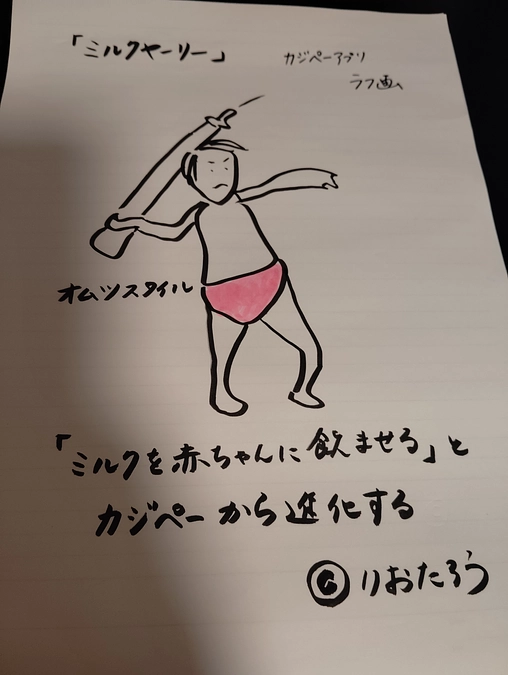 「ミルクヤーリー」
カジペーアプリ
ラフ画
オムツスタイル
「ミルクを赤ちゃんに飲ませる」と
カジペーから進化する
©りおたろう